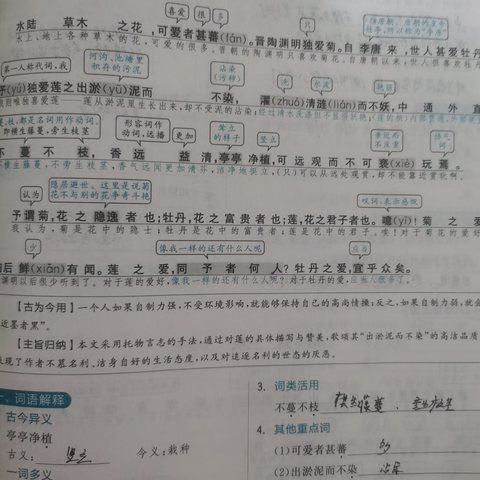 喜爱 很多 只
水陆 草木 之花,可爱者甚蕃(fán)。晋陶渊明独爱菊。自李唐来,世人甚爱牡丹
水上、地上各种草木的花,可爱的很多。晋朝的陶渊明只喜欢菊花。
第一人称代词,我 河沟、池塘里积存的污泥 沾染(污秽) 洗 水波 艳丽
予(yú)独爱莲之出淤(yū)泥而 不染,濯(zhuó)清涟(lián)而不妖,中通外直
莲从淤泥里生长出来,却不受泥的沾染;
蔓,枝,都是名词用作动词,即横生藤蔓,旁生枝茎 形容词作动词,远播 更加 耸立的样子 竖立 亲近而不庄重 语气词
不蔓不枝,香远益清,亭亭净植,可远观而不可亵(xiè)玩焉。
不横生藤蔓,不旁生枝茎,香气远闻更加清芬,洁净地挺立,(只)可以从远处观赏,却不能靠近赏玩啊。
认为 隐居避世。这里是说菊花不与别的花争奇斗艳 叹词,表示感慨
予谓菊,花之隐逸者也;牡丹,花之富贵者也;莲,花之君子者也。噫(yī)!菊之爱
我认为,菊是花中的隐士;牡丹是花中的富贵者;莲是花中的君子。唉!对于菊花的爱好
少 像我一样的还有什么人呢 应当
陶后鲜(xiǎn)有闻。莲之爱,同予者何人?牡丹之爱,宜乎众矣。
渊明以后很少听到了。对于莲的爱好,像我一样的还有什么人呢?对于牡丹的爱,应当人很多了。
【古为今用】一个人如果自制力强,不受环境影响,就能够保持自己的高尚情操;反之,如果自制力弱,就会
近墨者黑”。
【主旨归纳】本文采用托物言志的手法,通过对莲的具体描写与赞美,歌颂其“出淤泥而不染”的高洁品质
表现了作者不慕名利、洁身自好的生活态度,以及对追逐名利的世态的厌恶。
一、词语解释
古今异义
亭亭净植
古义: 竖立 今义:栽种
一词多义
3. 词类活用
不蔓不枝
4. 其他重点词
(1)可爱者甚蕃 多
(2)出淤泥而不染 沾染